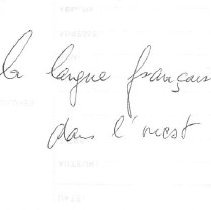 la langue français
dans l'ouest